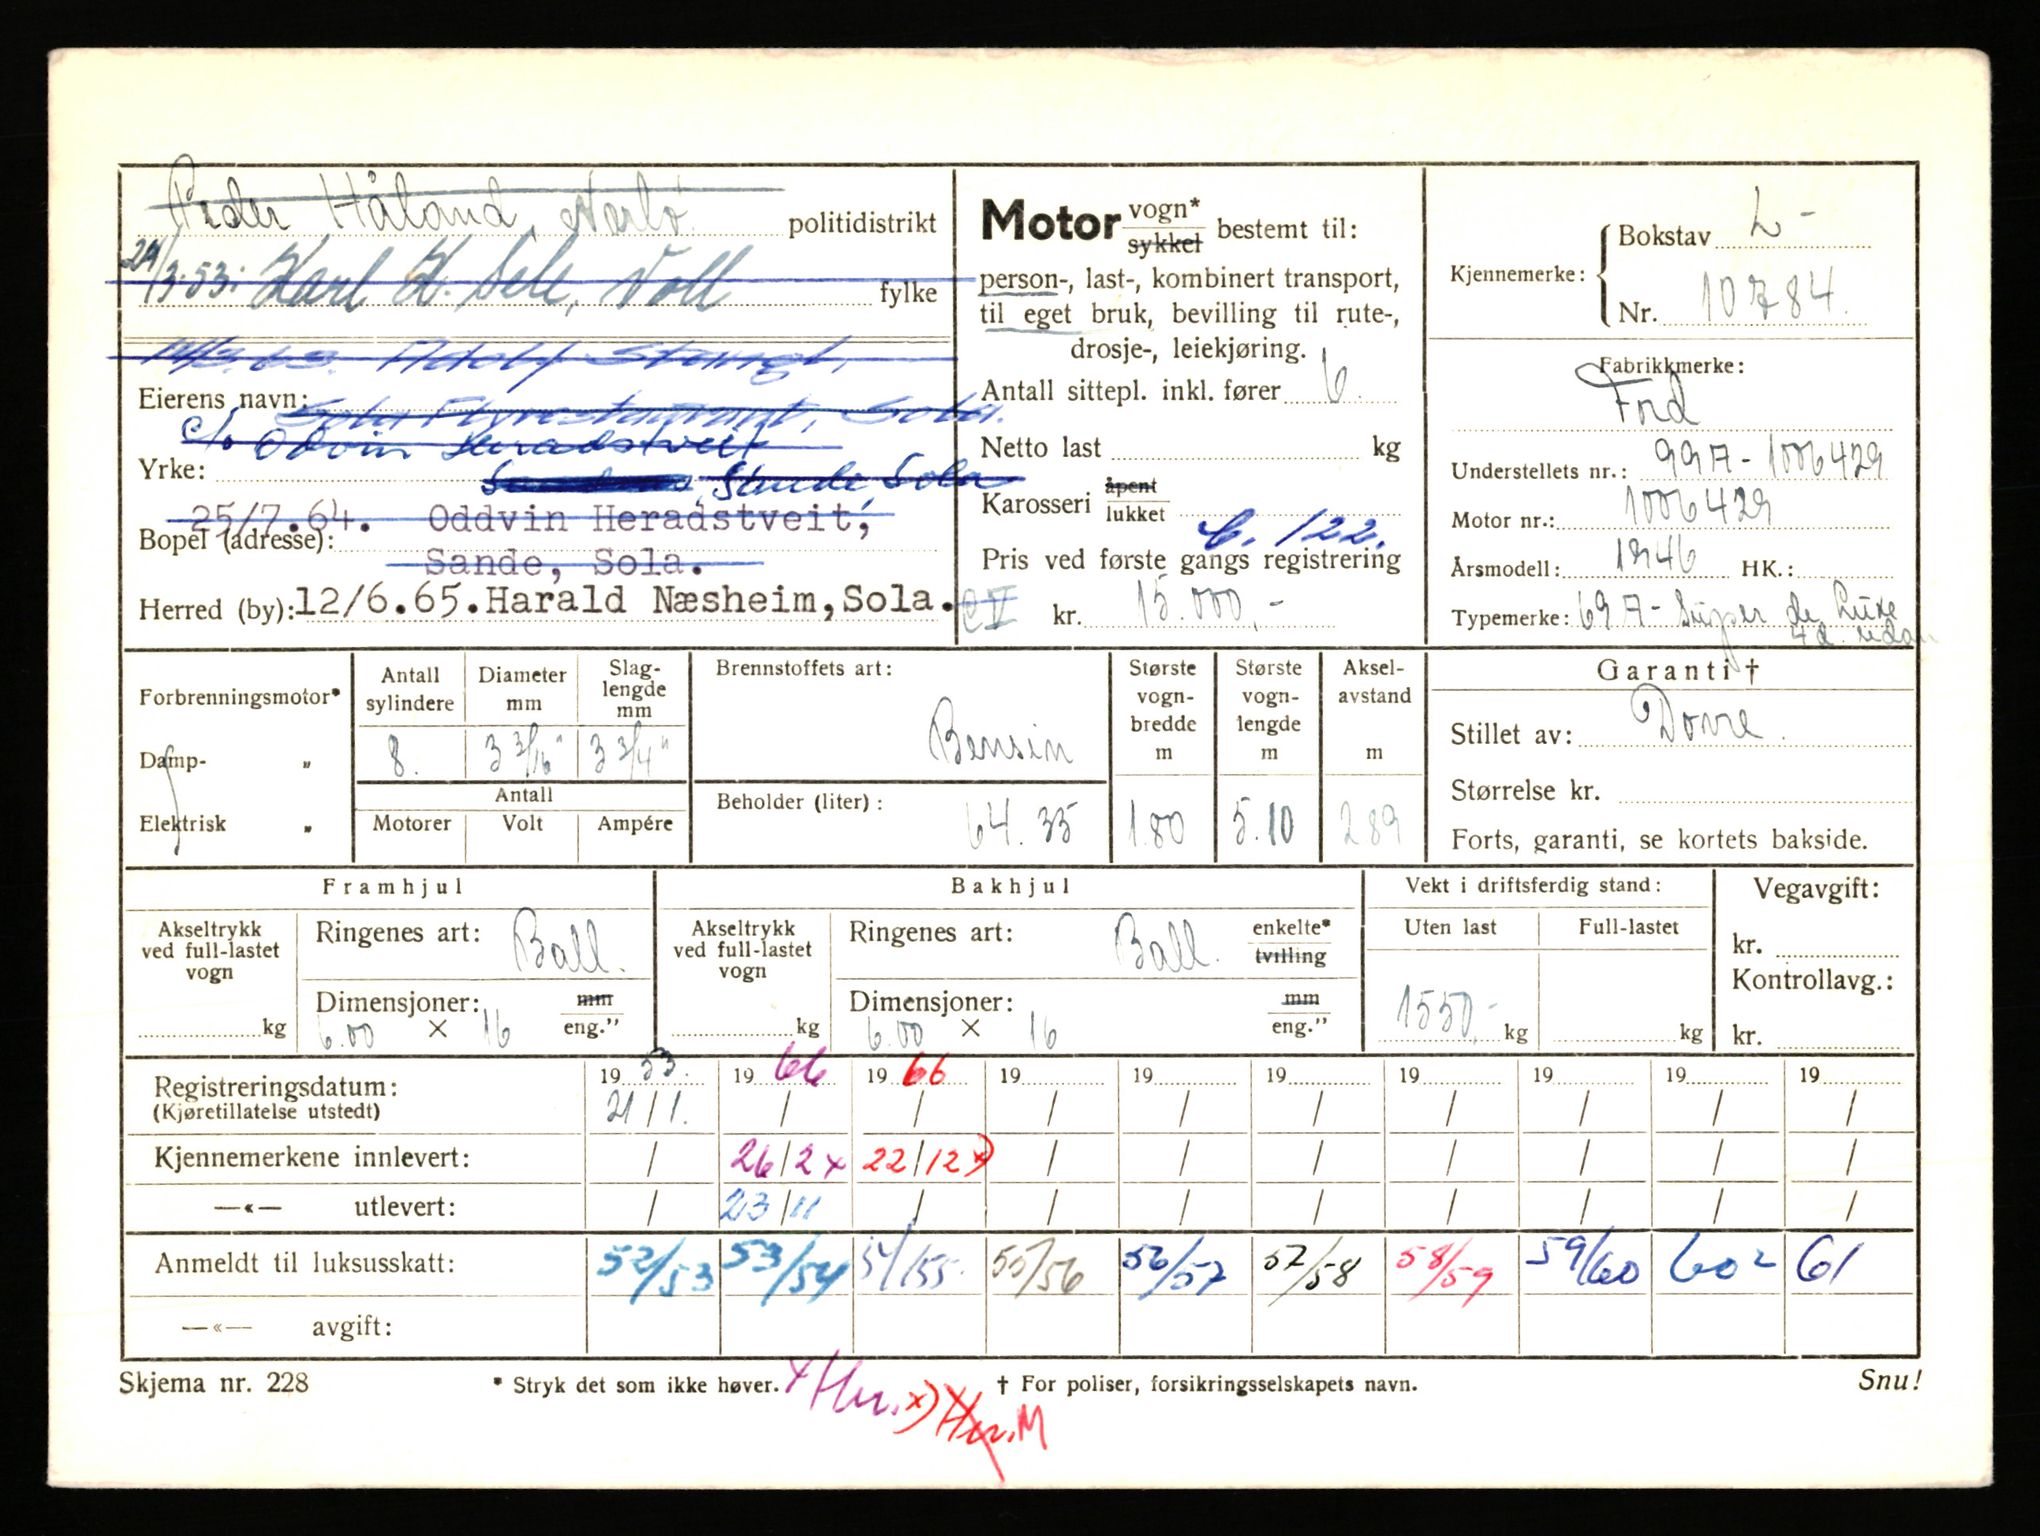 Peder Håland, Nærbø politidistrikt
24/3-53: Karl K. Sele, Voll fylke
Adolf Stangl,
Eierens navn: Sola Flyrestaurant, Sola.
c/o Odvin Heradstveit
Yrke: Sande, Sola
25/7.64. Oddvin Heradstveit,
Bopel (adresse):
Sande, Sola.
Herred (by): 12/6.65. Harald Næsheim, Sola.
Motor vogn* sykkel bestemt til:
person-, last-, kombinert transport,
til eget bruk, bevilling til rute-,
drosje-, leiekjøring.
Antall sittepl. inkl. fører 6.
Netto last kg
Karosseri åpent lukket
C. 122.
Pris ved første gangs registrering
kr. 15.000,-
Kjennemerke: Bokstav L-
Nr. 10784.
Fabrikkmerke:
Ford
Understellets nr.: 99A-1006429
Motor nr.: 1006429
Årsmodell: 1946 HK.:
Typemerke: 69A-Super de Luxe
4 d. sedan
Forbrenningsmotor*
Damp- „
Elektrisk „
Antall sylindere 8.
Diameter mm 3 3/16"
Slag-lengde mm 3 3/4"
Antall
Motorer Volt Ampére
Brennstoffets art:
Bensin
Beholder (liter): 64.35
Største vogn-bredde m 1.80
Største vogn-lengde m 5.10
Aksel-avstand m 2.89
Garanti †
Stillet av: Dovre.
Størrelse kr.
Forts, garanti, se kortets bakside.
Framhjul
Akseltrykk ved full-lastet vogn kg
Ringenes art: Ball.
Dimensjoner: mm eng."
6.00 × 16
Bakhjul
Akseltrykk ved full-lastet vogn kg
Ringenes art: Ball. enkelte* tvilling
Dimensjoner: mm eng."
6.00 × 16
Vekt i driftsferdig stand:
Uten last 1550,- kg
Full-lastet kg
Vegavgift:
kr.
Kontrollavg.:
kr.
Registreringsdatum: 1953. 1966 1966 19 19 19 19 19 19 19
(Kjøretillatelse utstedt) 21/1. / / / / / / / / /
Kjennemerkene innlevert: / 26/2 x 22/12 x) / / / / / / /
—«— utlevert: / 23/11 / / / / / / / /
Anmeldt til luksusskatt: 52/53 53/54 54/55. 55/56 56/57 57/58 58/59 59/60 60² 61
—«— avgift:
Skjema nr. 228 * Stryk det som ikke høver. † For poliser, forsikringsselskapets navn. Snu!